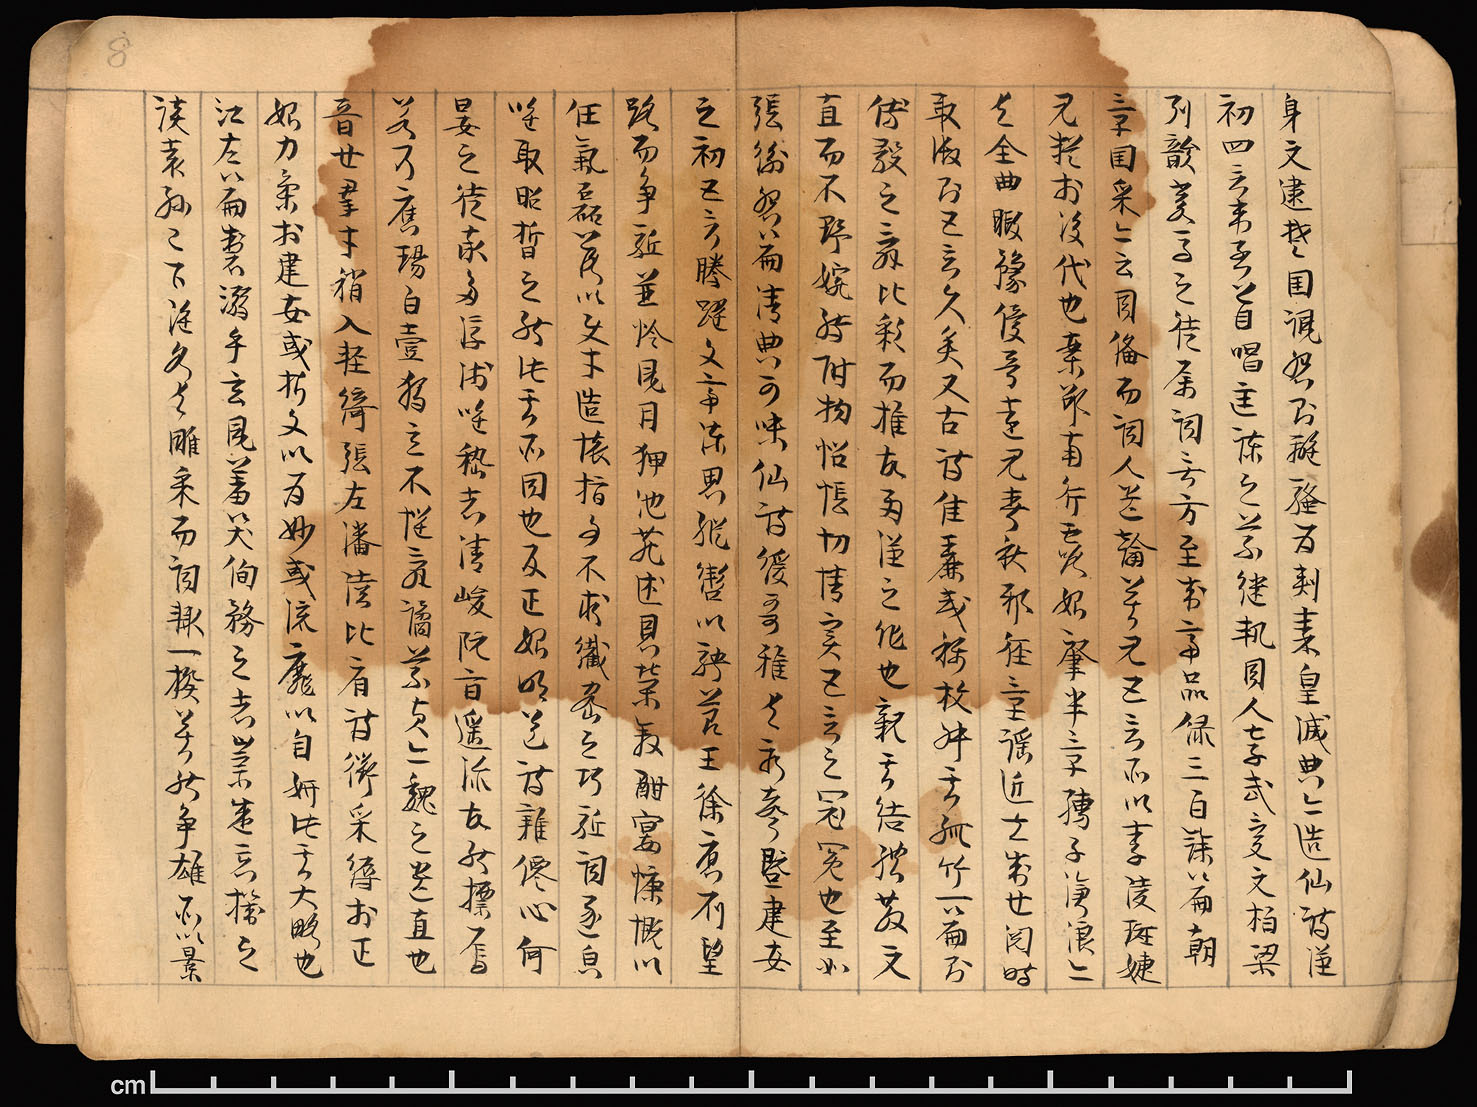 身文逮楚国諷怨則離騷為刺秦皇滅典亦造仙詩漢
初四言韋孟首唱匡諫之義継軌周人孝武愛文柏梁
列韻嚴馬之徒属詞無方至成帝品録三百餘篇朝
章国采亦云周備而詞人遺翰莫見五言所以李陵班婕
見擬於後代也案邵南行露始肇半章孺子滄浪亦
有全曲暇豫優哥遠見春秋邪徑童謡近在成世閲時
取徴則五言久矣又古詩佳麗或稱枚叔其孤竹一篇則
傅毅之詞比彩而推故兩漢之作也觀其結體散文
直而不野婉轉附物怊悵切情實五言之冠冕也至如
張衡怨篇清典可味仙詩緩哥雅有新聲暨建安
之初五言騰躍文帝陳思縱轡以騁節王徐應劉望
路而争駈並怜風月狎池苑述恩榮叙酣宴慷慨以
任氣磊落以使才造懐指事不求纎密之巧駈詞逐皃
唯取昭晳之能此其所同也及正始明道詩雜僊心何
晏之徒率多浮淺唯嵇志清峻阮旨遥深故能摽焉
若乃應璩百壹獨立不懼辞譎義貞亦魏之遺直也
晋世群才稍入軽綺張左潘陸比肩詩衢采縟於正
始力柔於建安或析文以為妙或流靡以自妍此其大略也
江左篇製溺乎玄風羞笑徇務之志崇盛忘機之
談袁孫已下雖各有雕采而詞趣一揆莫能争雄所以景
8
cm